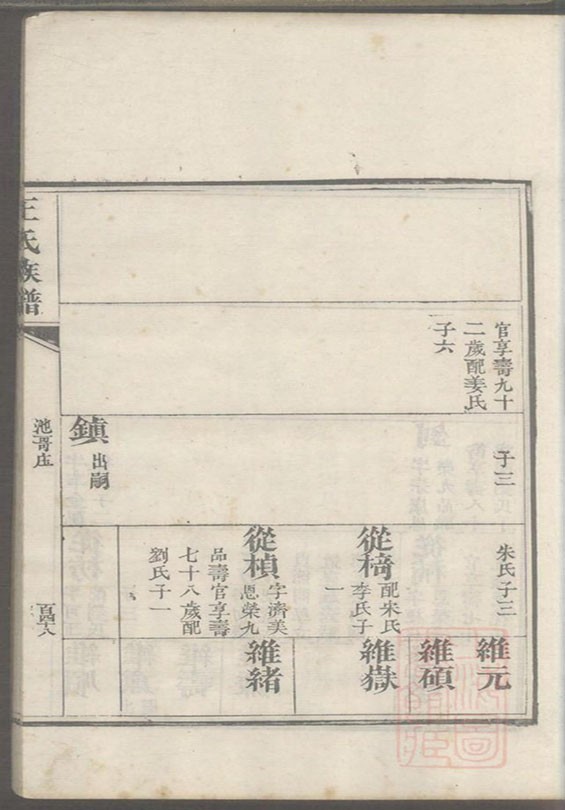 官享壽九十
二歲配姜氏
子六
子三
鎮
出嗣
朱氏子三
從檹
配朱氏
李氏子
一
從楨
字濟美
恩榮九
品壽官享壽
七十八歲配
劉氏子一
維元
維碩
維嶽
維緒
王氏族譜
池哥庄
百四八